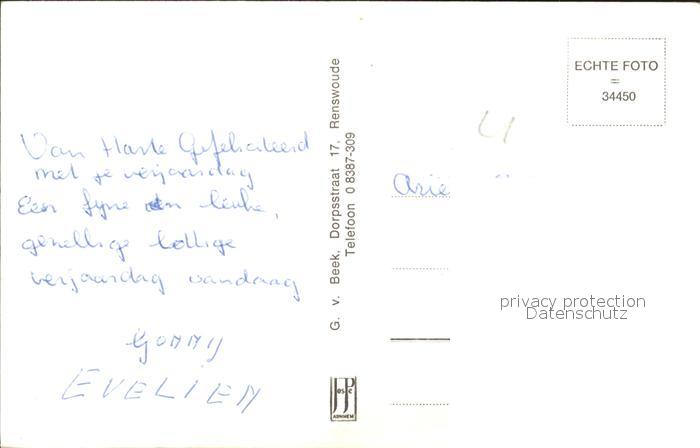 Van Harte Gefeliciteerd
met je verjaardag
Een fijne en leuke,
gezellige lollige
verjaardag vandaag
Gommy
EVELIEN
G. v. Beek, Dorpsstraat 17, Renswoude
Telefoon 0 8387-309
JosPé
ARNHEM
ECHTE FOTO
=
34450
Arië
privacy protection
Datenschutz